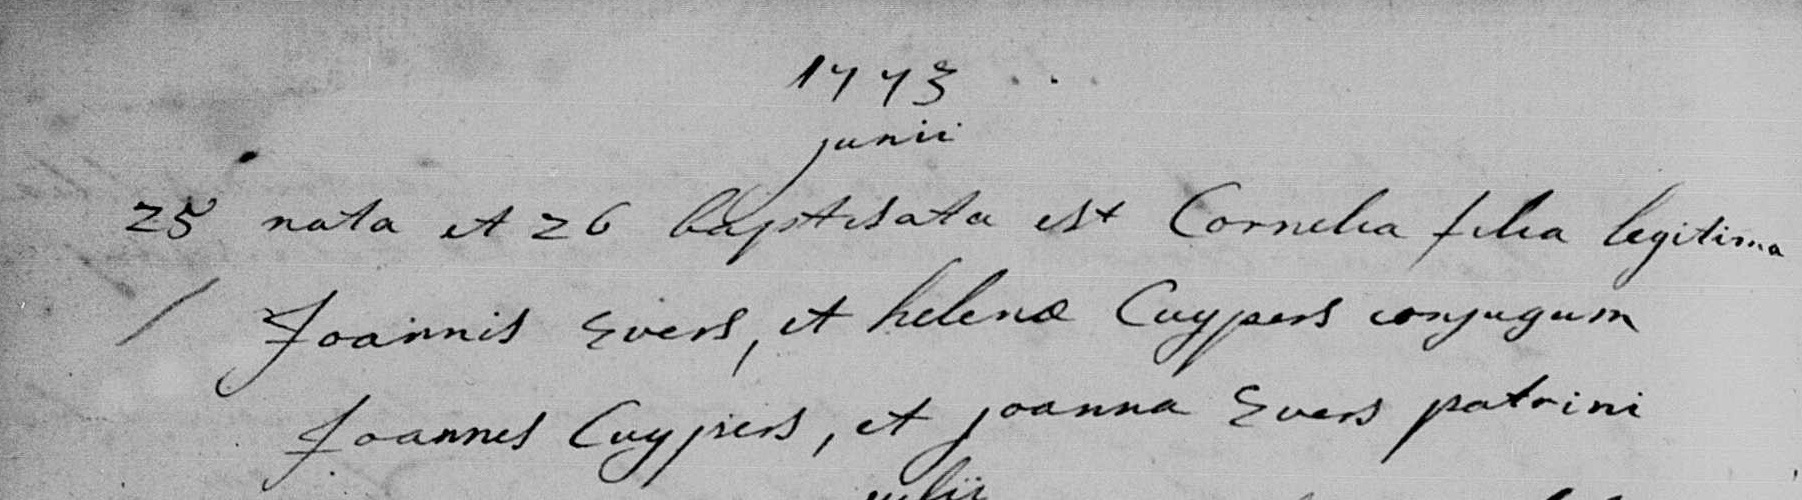 1773
junii
25 nata et 26 baptisata est Cornelia filia legitima
Joannis Evers, et helenæ Cuypers conjugum
Joannes Cuypers, et joanna Evers patrini
julii